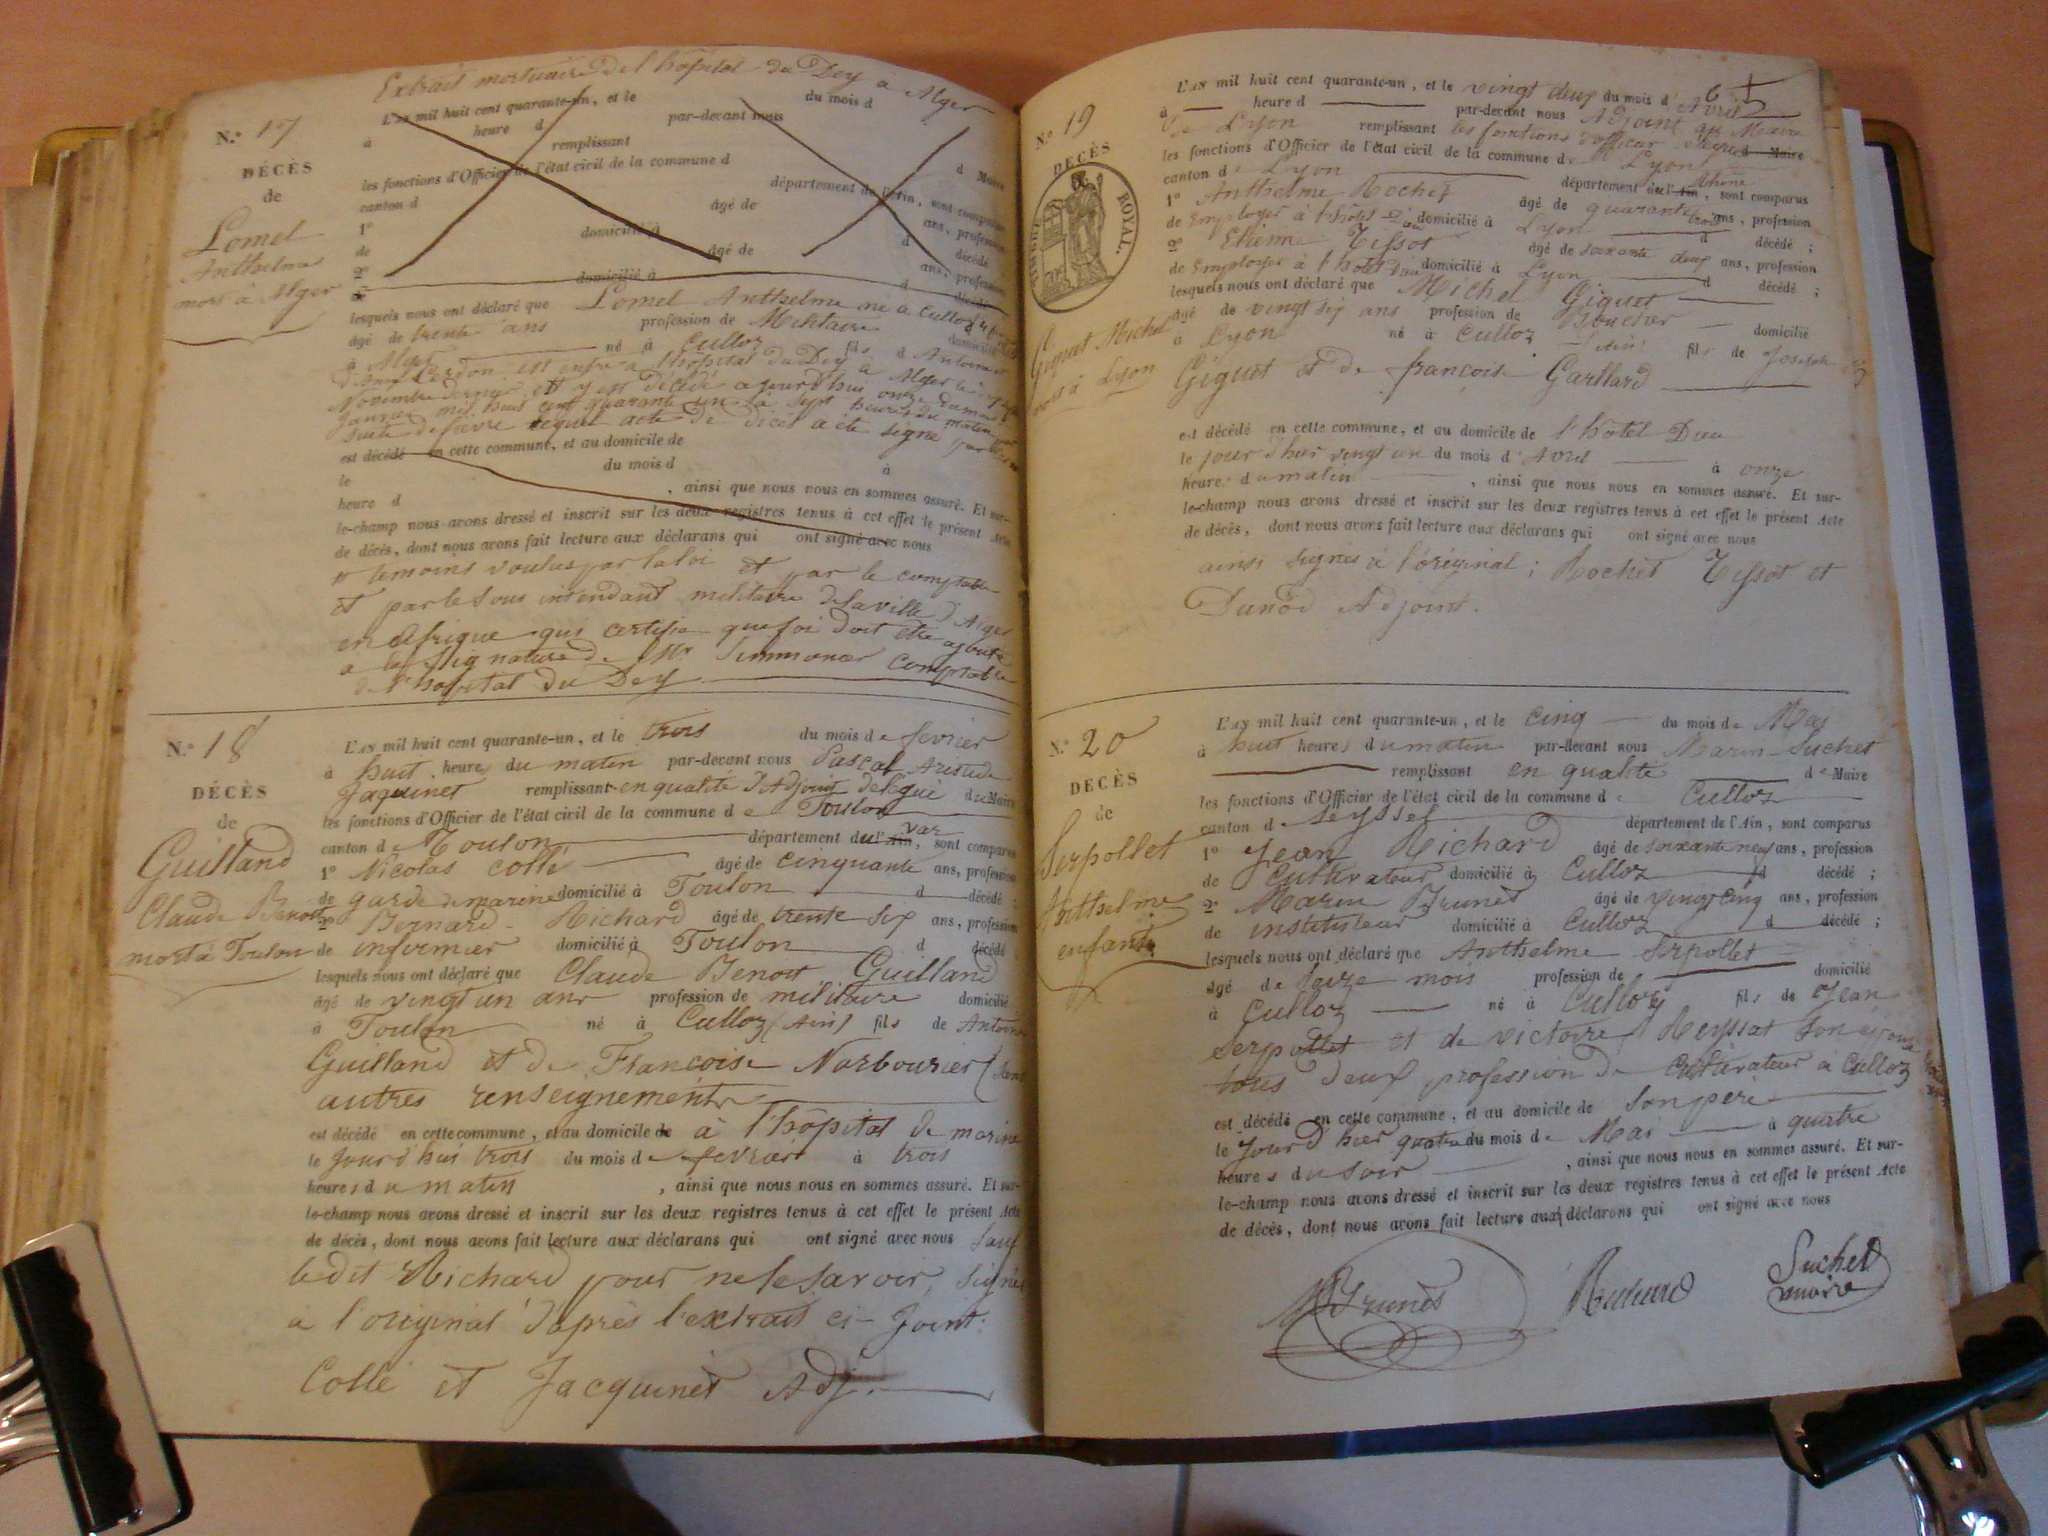 Extrait mortuaire de l'hôpital du Dey a Alger
N.° 17
DÉCÈS
de
Lomel
Anthelme
mort à Alger
L'AN mil huit cent quarante-un, et le du mois d
à heure d par-devant nous
remplissant d Maire
les fonctions d'Officier de l'état civil de la commune d
canton d département de l'Ain, sont comparus
1° âgé de ans, profession
de domicilié à d décédé ;
2° âgé de ans, profession
de domicilié à d décédé
lesquels nous ont déclaré que Lomel Anthelme né a Culloz
âgé de trente ans profession de Militaire domicilié
à Alger né à Culloz fils d Antoine
est entré a l'hôpital du Dey a Alger le
Novembre dernier et y est décédé aujourd'hui onze du mois
Janvier mil huit cent quarante un à sept heures du matin par
suite de fievre lequel acte de décès a été signé par
est décédé en cette commune, et au domicile de
le du mois d à
heure d , ainsi que nous nous en sommes assuré. Et sur-
le-champ nous avons dressé et inscrit sur les deux registres tenus à cet effet le présent Acte
de décès, dont nous avons fait lecture aux déclarans qui ont signé avec nous
temoins voulus par la loi et par le comptable
et par le Sous intendant militaire de la ville d'Alger
en Afrique qui certifie que foi doit être ajouté
a la signature de Mr Simmoner comptable
de l'hopital du Dey
N.° 18
DÉCÈS
de
Guilland
Claude Benoit
mort à Toulon
L'AN mil huit cent quarante-un, et le trois du mois de fevrier
à huit heures du matin par-devant nous Pascal Aristide
Jaquinet remplissant en qualité d'Adjoint delegué du Maire
les fonctions d'Officier de l'état civil de la commune de Toulon
canton de Toulon département du l'Ain var, sont comparus
1° Nicolas Collé âgé de cinquante ans, profession
de garde de marine domicilié à Toulon d décédé ;
2° Bernard Richard âgé de trente six ans, profession
de infirmier domicilié à Toulon d décédé
lesquels nous ont déclaré que Claude Benoit Guilland
âgé de vingt un ans profession de militaire domicilié
à Toulon né à Culloz (Ain) fils de Antoine
Guilland et de Francoise Narbourier (sans
autres renseignements
est décédé en cette commune, et au domicile de à l'hôpital de marine
le jourd'hui trois du mois de fevrier à trois
heures du matin , ainsi que nous nous en sommes assuré. Et sur-
le-champ nous avons dressé et inscrit sur les deux registres tenus à cet effet le présent Acte
de décès, dont nous avons fait lecture aux déclarans qui ont signé avec nous sauf
ledit Richard pour ne le savoir, signés
a l'original d'après l'extrait ci-joint.
Collé et Jacquinet Adj.
6
N.° 19
DÉCÈS
TIMBRE ROYAL.
Giguet Michel
mort à Lyon
L'AN mil huit cent quarante-un, et le vingt deux du mois d'Avril
à heure d par-devant nous Adjoint au Maire
de Lyon remplissant les fonctions d'officier d Maire
les fonctions d'Officier de l'état civil de la commune de Lyon
canton de Lyon département de l'Ain Rhône, sont comparus
1° Anthelme Rochet âgé de quarante trois ans, profession
de Employer à l'hôtel Dieu domicilié à Lyon d décédé ;
2° Etienne Tissot âgé de soixante deux ans, profession
de Employer à l'hotel Dieu domicilié à Lyon d décédé ;
lesquels nous ont déclaré que Michel Giguet
âgé de vingt six ans profession de Boucher domicilié
à Lyon né à Culloz (Ain) fils de Joseph
Giguet et de francoise Gaillard
est décédé en cette commune, et au domicile de l'hôtel Dieu
le jour d'hier vingt un du mois d'Avril à onze
heures du matin , ainsi que nous nous en sommes assuré. Et sur-
le-champ nous avons dressé et inscrit sur les deux registres tenus à cet effet le présent Acte
de décès, dont nous avons fait lecture aux déclarans qui ont signé avec nous
ainsi signés à l'original ; Rochet Tissot et
Dunod Adjoint.
N.° 20
DÉCÈS
de
Serpollet
Anthelme
enfant
L'AN mil huit cent quarante-un, et le cinq du mois de Mai
à huit heures du matin par-devant nous Marin Suchet
remplissant en qualité de Maire
les fonctions d'Officier de l'état civil de la commune de Culloz
canton de Seyssel département de l'Ain, sont comparus
1° Jean Richard âgé de soixante neuf ans, profession
de Cultivateur domicilié à Culloz d décédé ;
2° Marin Brunet âgé de vingt cinq ans, profession
de instituteur domicilié à Culloz d décédé ;
lesquels nous ont déclaré que Anthelme Serpollet
âgé de seize mois profession de domicilié
à Culloz né à Culloz fils de Jean
Serpollet et de victoire Reyssat son epouse
tous deux profession de cultivateur à Culloz
est décédé en cette commune, et au domicile de son père
le Jourd'hier quatre du mois de Mai à quatre
heures du soir , ainsi que nous nous en sommes assuré. Et sur-
le-champ nous avons dressé et inscrit sur les deux registres tenus à cet effet le présent Acte
de décès, dont nous avons fait lecture aux déclarans qui ont signé avec nous
M Brunet Richard Suchet
maire